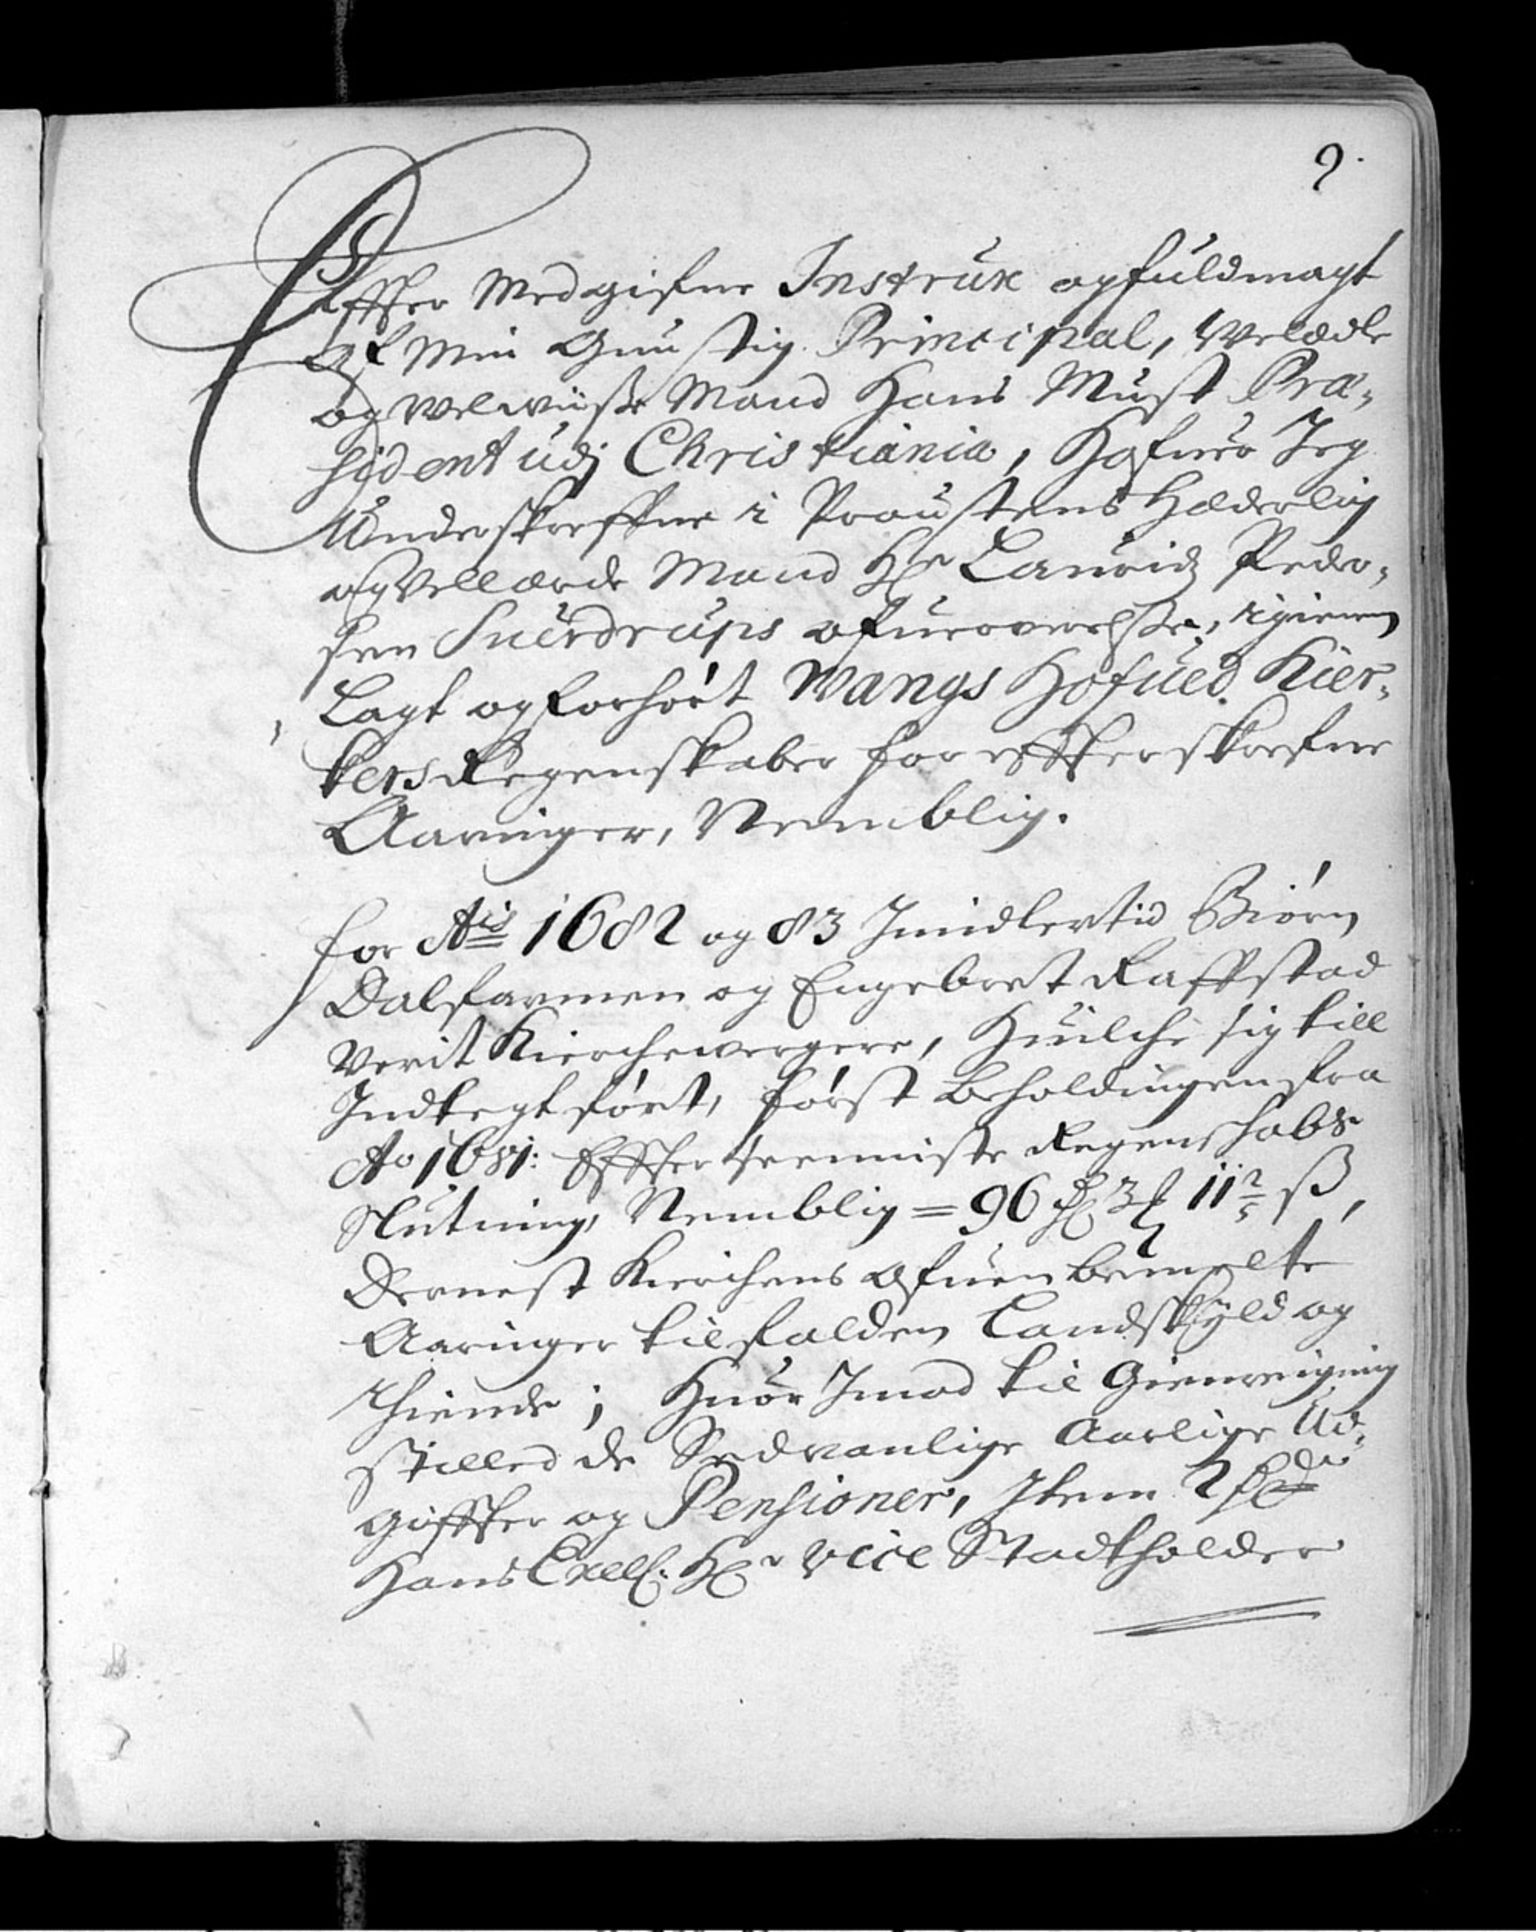 9.
Effter Medgifne Instrux og fuldmagt
Af Min Gunstig Principal, Welædle
og Welwiise Mand Hans Must Præ-
sident udj Christiania, Hafuer Jeg
Underskreffne i Proustens Hæderlig
og Vellærde Mand Hr Lauridz Peder-
sen Suerdrups ofuerverelse, igienem
Lagt og forhørt Wangs Hofued Kier-
kers Regenskaber for effterskrefne
Aaringer, Nemblig.
for Ais 1682 og 83 Jmidlertid Biørn
Dalfarmen og Engebret Raffstad
Verit Kierchewergere, Huilche sig till
Indtegt ført, først Beholdingen fra
Ao 1681: Effter seeniste Regenschabs
Slutning, Nemblig = 96 Rdr 3 11 2/5 ß,
Dernest Kirchens Ofuenbemelte
Aaringer tilfalden Landskyld og
Thiende; Huor Jmod til Gienreigning
stilled de Sedvanlige Aarlige Ud-
giffter og Pensioner, Jtem 2
Hans Excell. Hr Vice Stadtholder